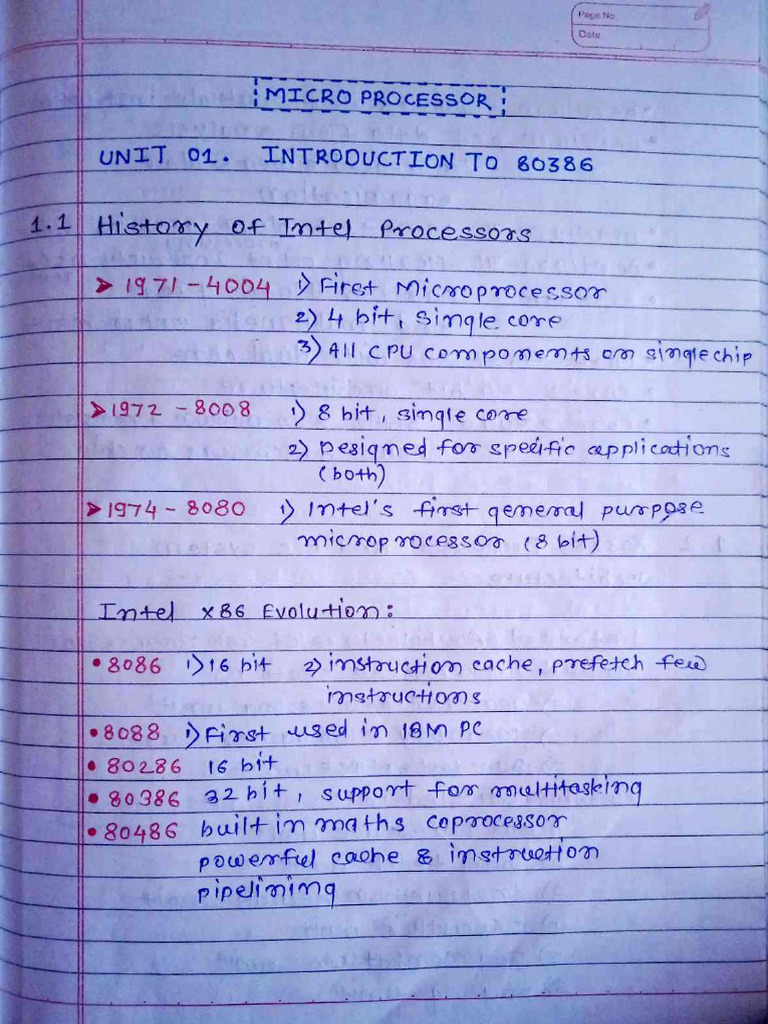 Page No.
Date
MICROPROCESSOR
UNIT 01. INTRODUCTION TO 80386
1.1 History of Intel Processors
➤ 1971-4004 1) First Microprocessor
2) 4 bit, single core
3) All CPU components on single chip
➤ 1972 - 8008 1) 8 bit, single core
2) Designed for specific applications
(both)
➤ 1974 - 8080 1) Intel's first general purpose
microprocessor (8 bit)
Intel x86 Evolution:
• 8086 1) 16 bit 2) instruction cache, prefetch few
instructions
• 8088 1) First used in IBM PC
• 80286 16 bit
• 80386 32 bit, support for multitasking
• 80486 built in maths coprocessor
powerful cache & instruction
pipelining